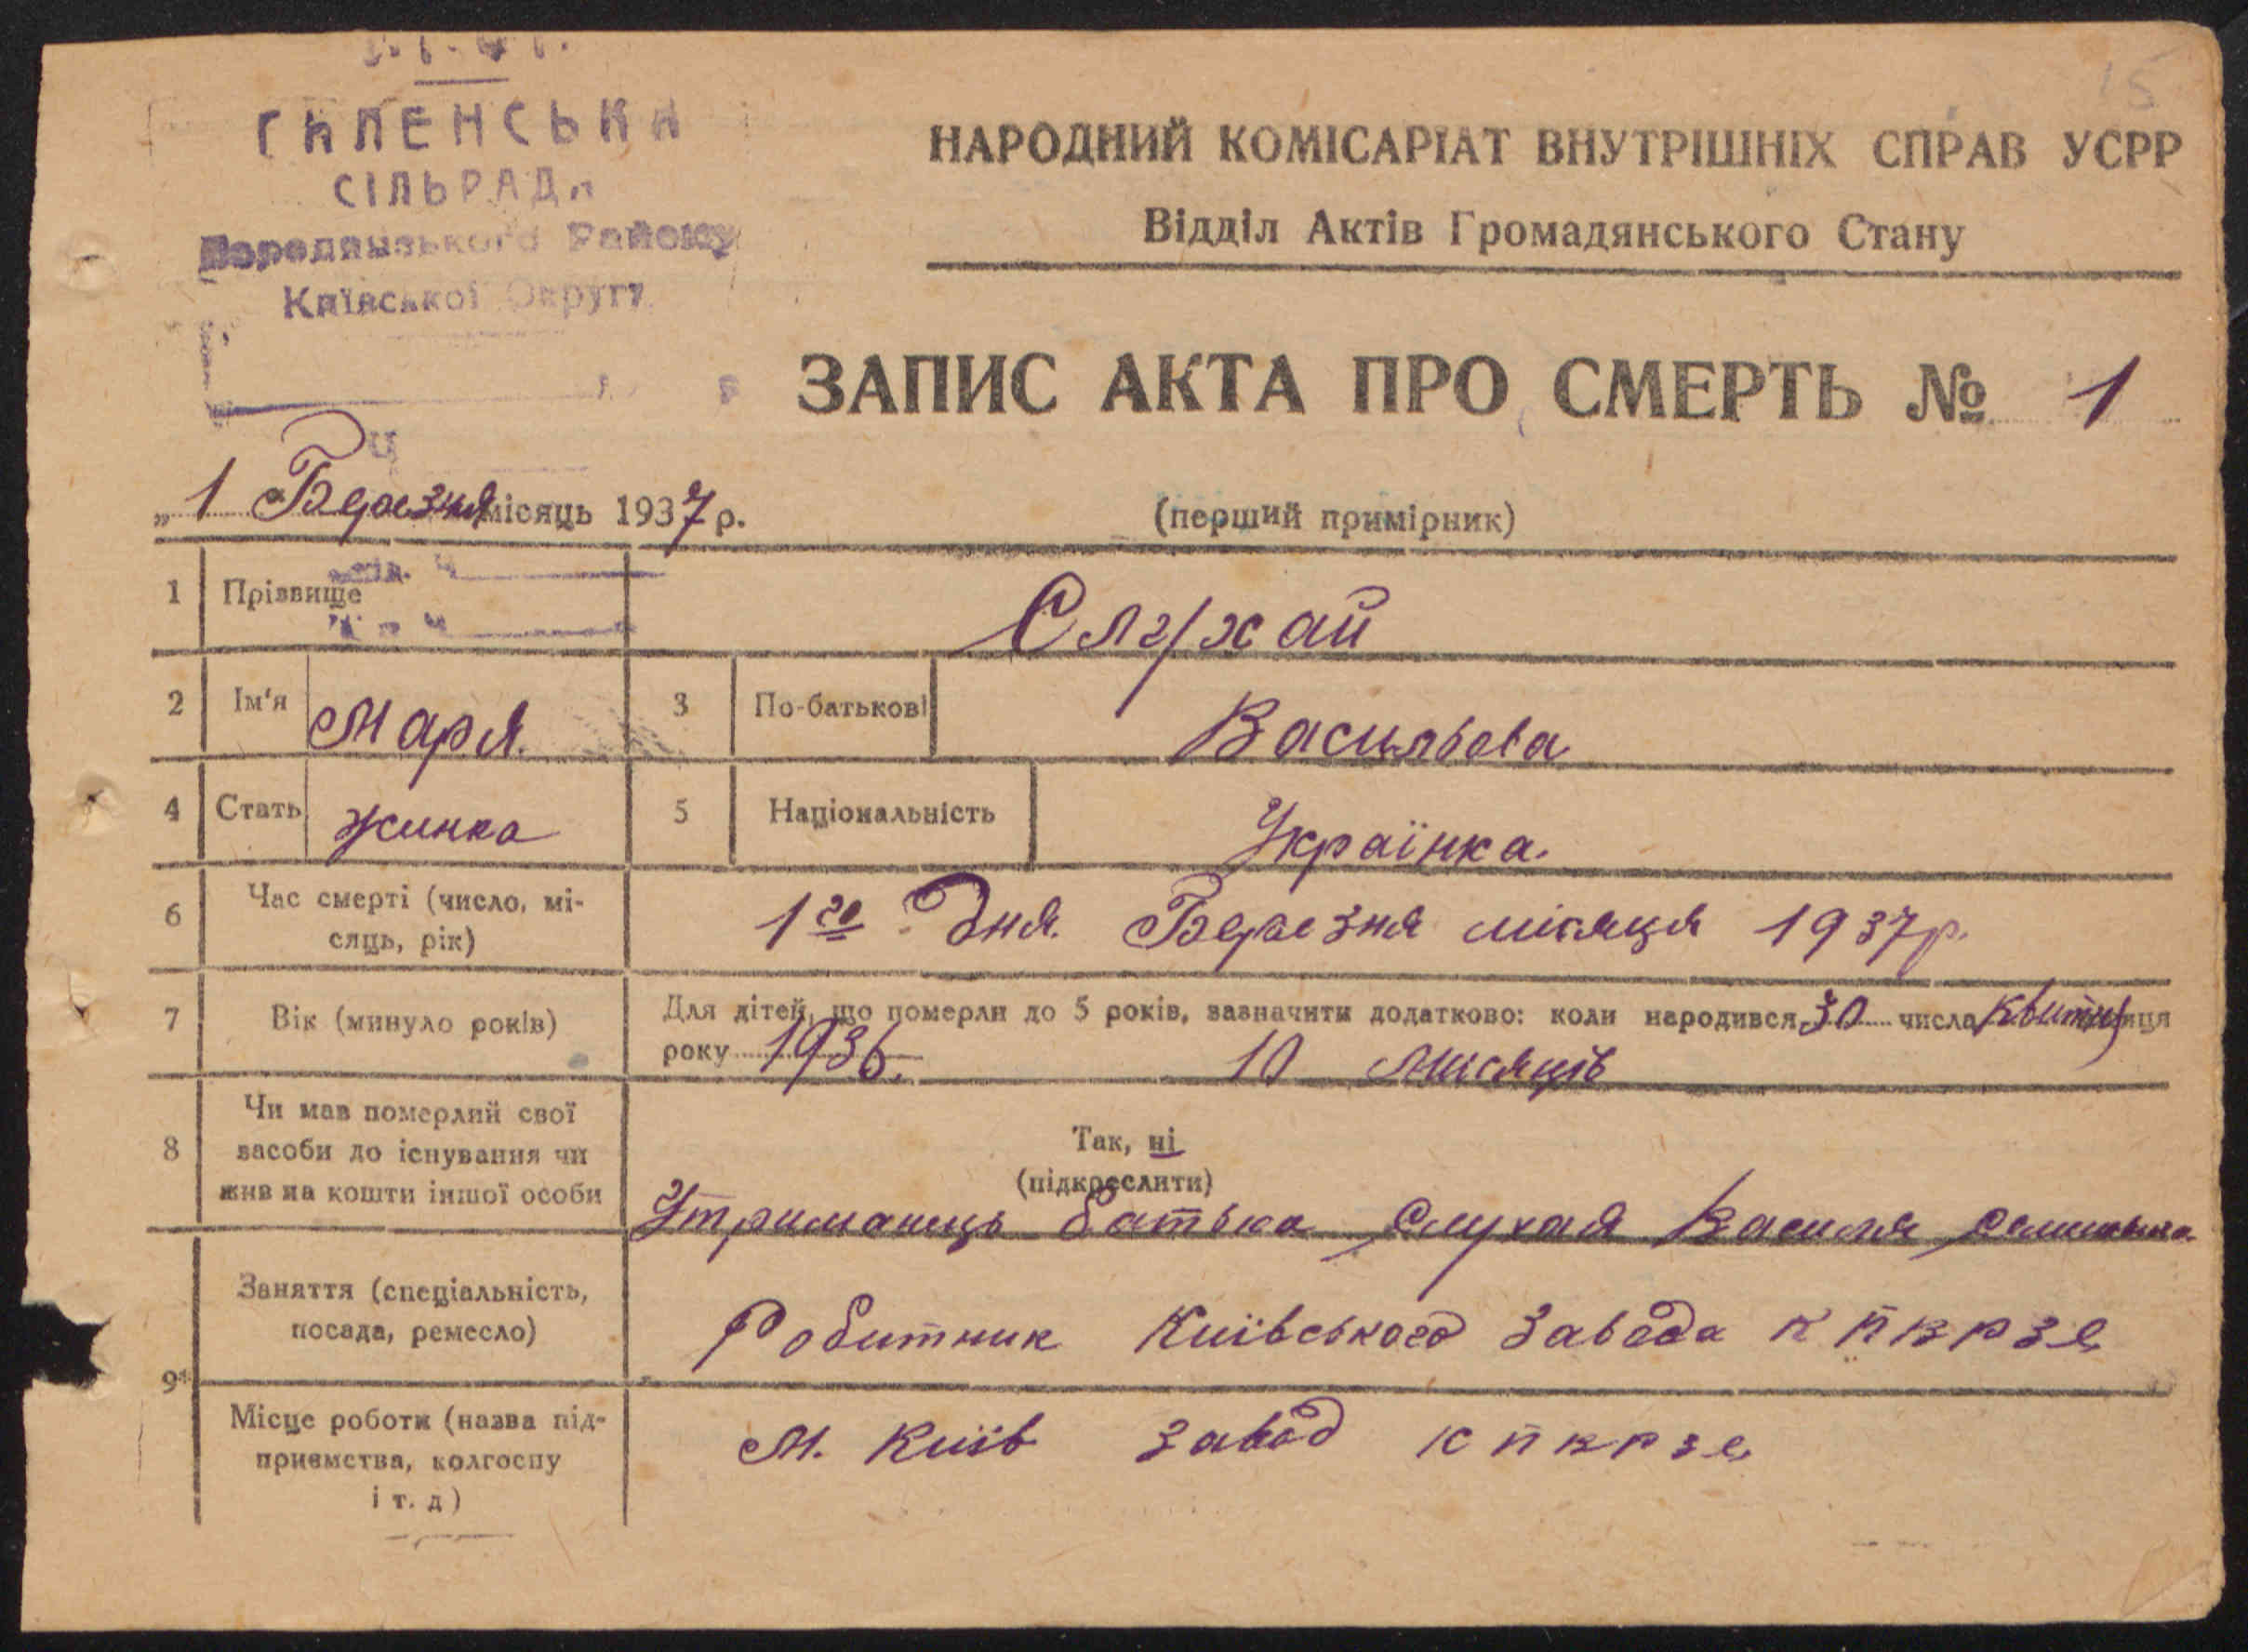 15
ГАЛЕНСЬКА
СІЛЬРАДА
Бородянського Району
Київської Округи
НАРОДНИЙ КОМІСАРІАТ ВНУТРІШНІХ СПРАВ УСРР
Відділ Актів Громадянського Стану
ЗАПИС АКТА ПРО СМЕРТЬ № 1
„ 1 Березня місяць 1937 р.
(перший примірник)
1 Прізвище Слухай
2 Ім'я Маря. 3 По-батькові Васильова
4 Стать жинка 5 Національність Українка.
6 Час смерті (число, мі-
сяць, рік) 1го Дня. Березня місяця 1937 р.
7 Вік (минуло років) Для дітей, що померли до 5 років, зазначити додатково: коли народився 30 числа Квітня
року 1936. 10 місяців
8 Чи мав померлий свої
засоби до існування чи
жив на кошти іншої особи
Так, ні
(підкреслити)
Утриманець батька Слухая Василя
9 Заняття (спеціальність,
посада, ремесло) Робитник Київського завода к п в р з е
Місце роботи (назва під-
приємства, колгоспу
і т. д) М. Київ завод к п в р з е